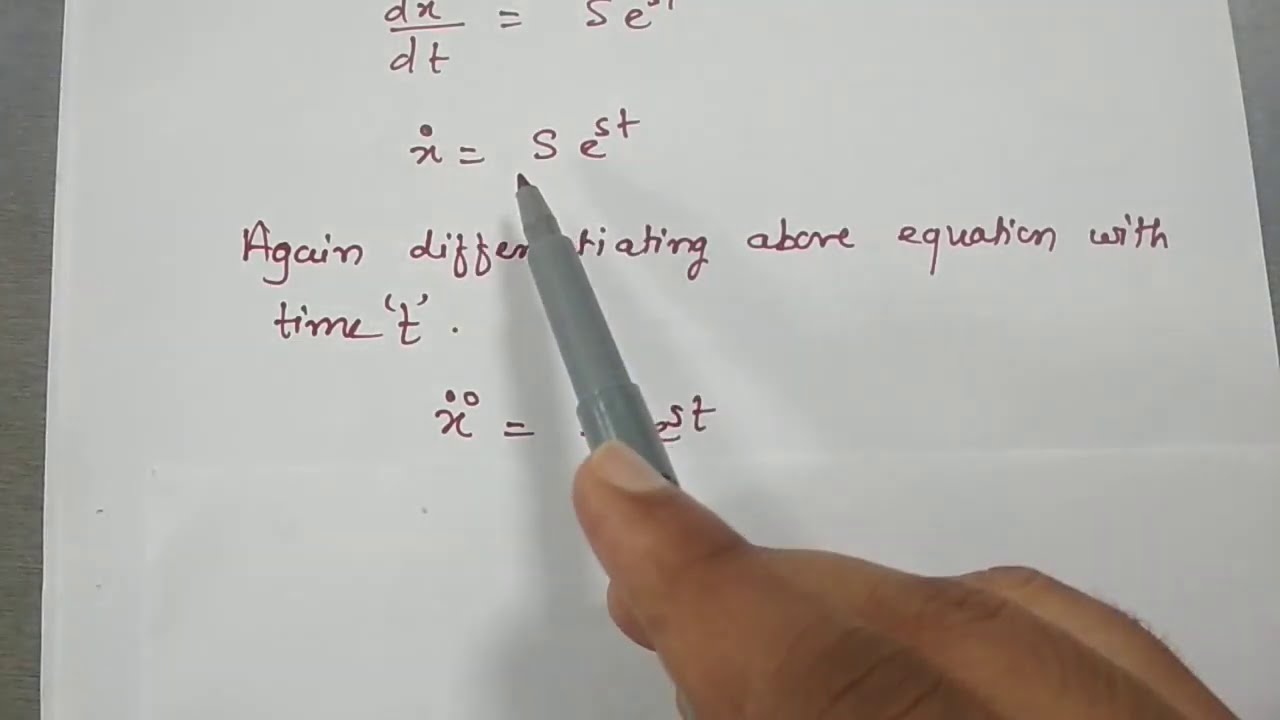 dx/dt = S e^st
ẋ = S e^st
Again differentiating above equation with
time 't'.
ẍ = e^st